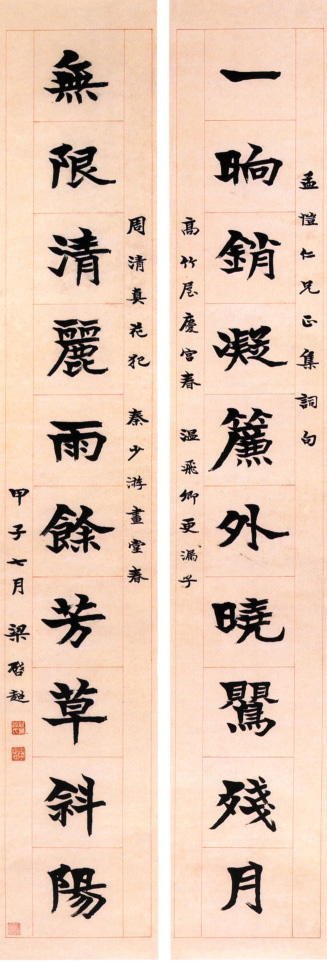 孟愷仁兄正集詞句
一晌銷凝簾外曉鸎殘月
高竹屋慶宮春 溫飛卿更漏子
周清真花犯 秦少游畫堂春
無限清麗雨餘芳草斜陽
甲子七月 梁啓超